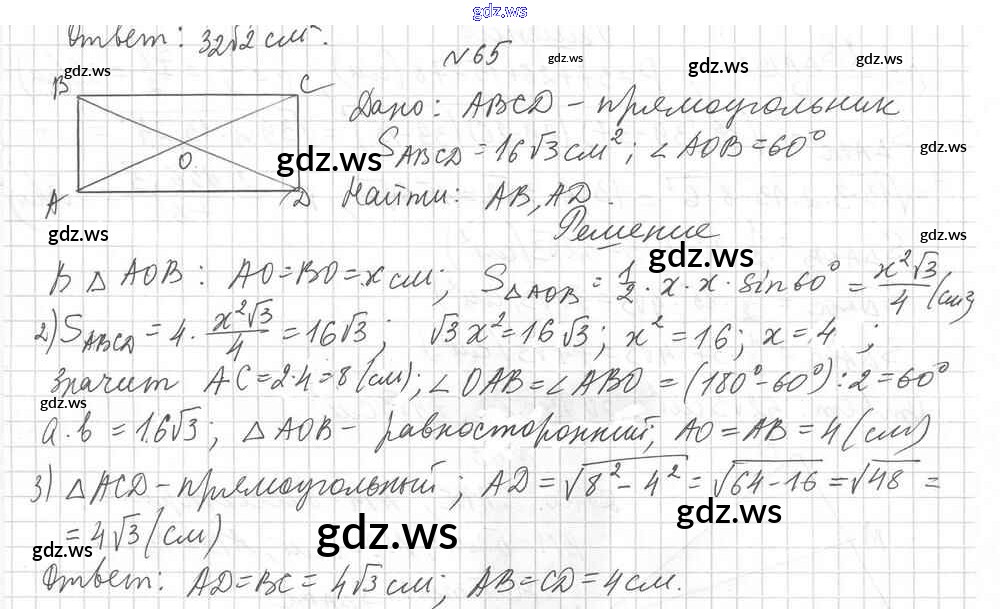 gdz.ws
Ответ: 32√2 см².
gdz.ws
№65
gdz.ws
gdz.ws
gdz.ws
B C
Дано: ABCD - прямоугольник
O
gdz.ws
S_ABCD = 16√3 см²; ∠AOB = 60°
gdz.ws
A D
Найти: AB, AD.
gdz.ws
Решение
gdz.ws
gdz.ws
В △ AOB: AO = BO = x см; S_△AOB = 1/2 · x · x · sin 60° = x²√3/4 (см²)
2) S_ABCD = 4 · x²√3/4 = 16√3; √3 x² = 16√3; x² = 16; x = 4;
значит AC = 2·4 = 8 (см); ∠OAB = ∠ABO = (180° - 60°) : 2 = 60°
gdz.ws
a·b = 16√3; △ AOB - равносторонний; AO = AB = 4 (см)
3) △ ACD - прямоугольный; AD = √8² - 4² = √64 - 16 = √48 =
gdz.ws
= 4√3 (см)
gdz.ws
gdz.ws
Ответ: AD = BC = 4√3 см; AB = CD = 4 см.